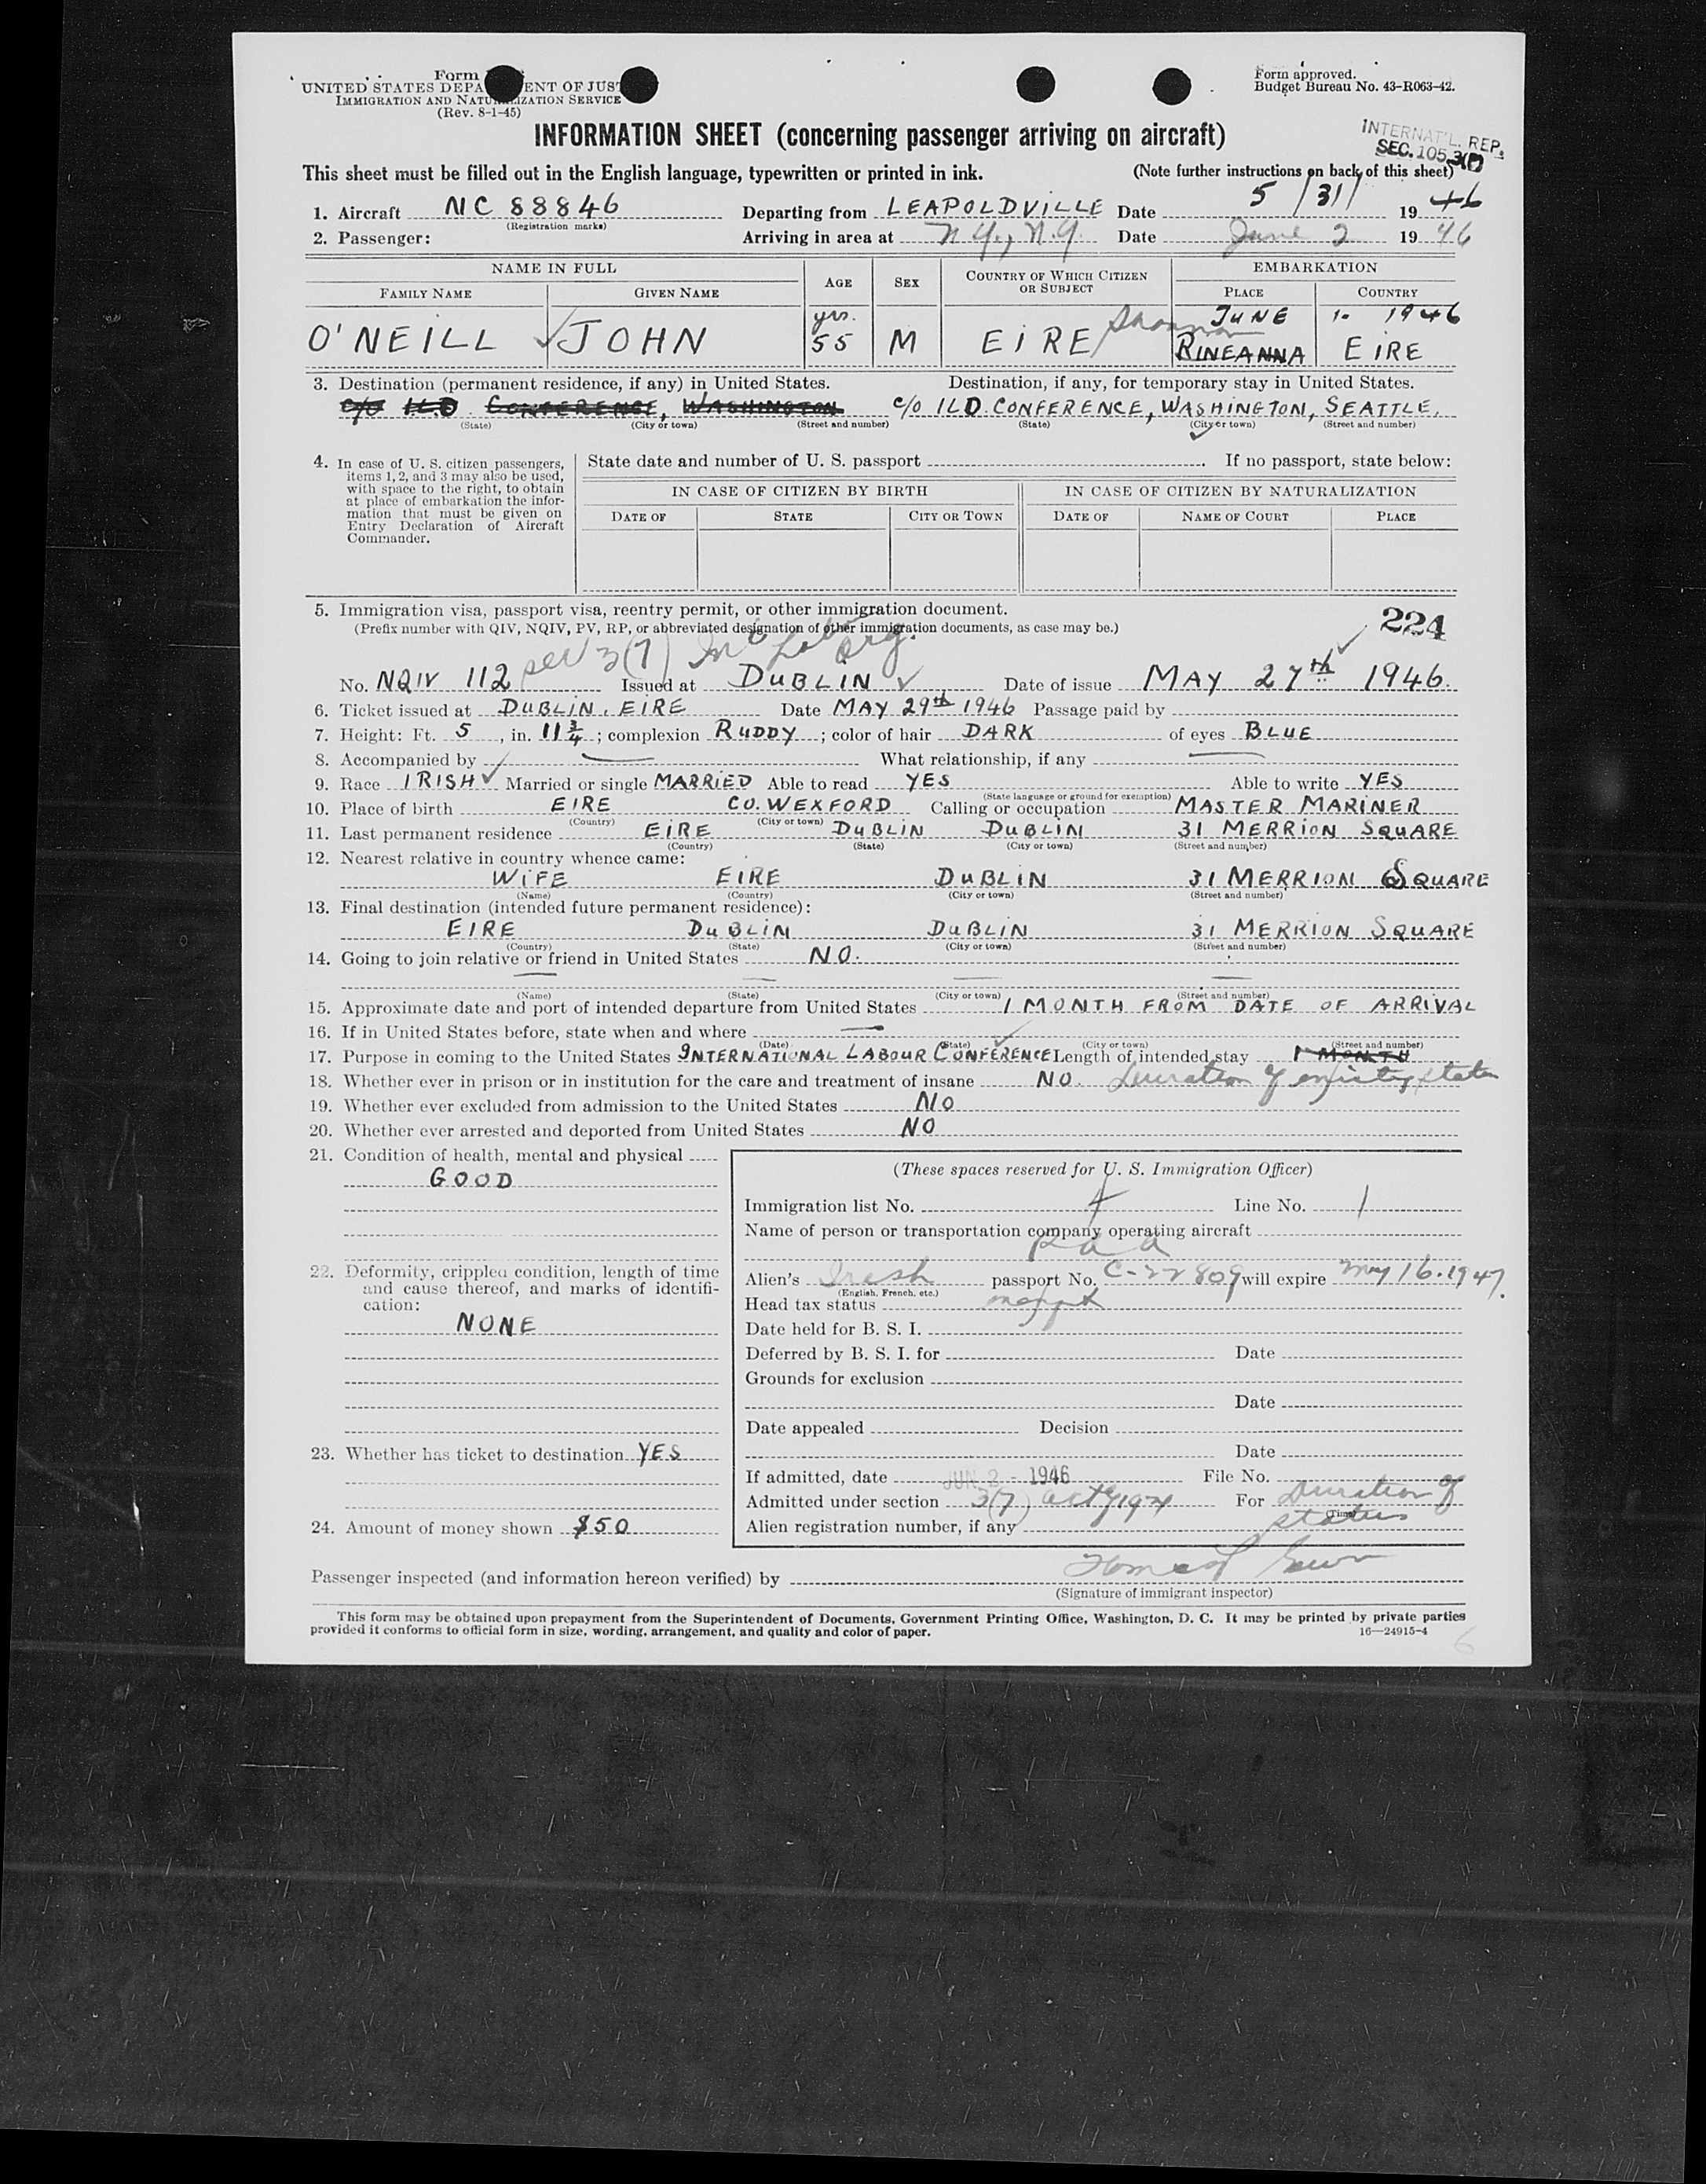 Form
UNITED STATES DEPA ENT OF JUS
IMMIGRATION AND NATU IZATION SERVICE
(Rev. 8-1-45)
Form approved.
Budget Bureau No. 43-R063-42.
INFORMATION SHEET (concerning passenger arriving on aircraft)
INTERNAT'L. REP.
SEC. 105.3(D)
This sheet must be filled out in the English language, typewritten or printed in ink. (Note further instructions on back of this sheet)
1. Aircraft NC 88846 Departing from LEAPOLDVILLE Date 5/31/ 1946
(Registration marks)
2. Passenger: Arriving in area at N.Y., N.Y. Date June 2 1946
NAME IN FULL AGE SEX COUNTRY OF WHICH CITIZEN OR SUBJECT EMBARKATION
FAMILY NAME GIVEN NAME PLACE COUNTRY
yrs. Shannon JUNE 1. 1946
O'NEILL JOHN 55 M EIRE RINEANNA EIRE
3. Destination (permanent residence, if any) in United States. Destination, if any, for temporary stay in United States.
C/O I.L.O. CONFERENCE, WASHINGTON C/O ILO. CONFERENCE, WASHINGTON, SEATTLE.
(State) (City or town) (Street and number) (State) (City or town) (Street and number)
4. In case of U. S. citizen passengers, items 1, 2, and 3 may also be used, with space to the right, to obtain at place of embarkation the information that must be given on Entry Declaration of Aircraft Commander.
State date and number of U. S. passport If no passport, state below:
IN CASE OF CITIZEN BY BIRTH IN CASE OF CITIZEN BY NATURALIZATION
DATE OF STATE CITY OR TOWN DATE OF NAME OF COURT PLACE
5. Immigration visa, passport visa, reentry permit, or other immigration document.
(Prefix number with QIV, NQIV, PV, RP, or abbreviated designation of other immigration documents, as case may be.)
224
sec 3(7) Labor Org.
No. NQIV 112 Issued at DUBLIN Date of issue MAY 27th 1946.
6. Ticket issued at DUBLIN. EIRE Date MAY 29th 1946 Passage paid by
7. Height: Ft. 5, in. 11 3/4; complexion RUDDY; color of hair DARK of eyes BLUE
8. Accompanied by What relationship, if any
9. Race IRISH Married or single MARRIED Able to read YES Able to write YES
(State language or ground for exemption)
10. Place of birth EIRE CO. WEXFORD Calling or occupation MASTER MARINER
(Country) (City or town)
11. Last permanent residence EIRE DUBLIN DUBLIN 31 MERRION SQUARE
(Country) (State) (City or town) (Street and number)
12. Nearest relative in country whence came:
WIFE EIRE DUBLIN 31 MERRION SQUARE
(Name) (Country) (City or town) (Street and number)
13. Final destination (intended future permanent residence):
EIRE DUBLIN DUBLIN 31 MERRION SQUARE
(Country) (State) (City or town) (Street and number)
14. Going to join relative or friend in United States NO.
(Name) (State) (City or town) (Street and number)
15. Approximate date and port of intended departure from United States 1 MONTH FROM DATE OF ARRIVAL
16. If in United States before, state when and where
(Date) (State) (City or town) (Street and number)
17. Purpose in coming to the United States INTERNATIONAL LABOUR CONFERENCE Length of intended stay 1 MONTH
18. Whether ever in prison or in institution for the care and treatment of insane NO. Duration of status
19. Whether ever excluded from admission to the United States NO
20. Whether ever arrested and deported from United States NO
21. Condition of health, mental and physical
GOOD
22. Deformity, crippled condition, length of time and cause thereof, and marks of identification:
NONE
23. Whether has ticket to destination YES
24. Amount of money shown $50
(These spaces reserved for U. S. Immigration Officer)
Immigration list No. 4 Line No. 1
Name of person or transportation company operating aircraft
P a a
Alien's Irish passport No. C-22809 will expire May 16. 1947.
(English, French, etc.)
Head tax status
Date held for B. S. I.
Deferred by B. S. I. for Date
Grounds for exclusion
Date
Date appealed Decision
Date
If admitted, date JUN 2 - 1946 File No.
Admitted under section 3(7) act 1924 For Duration of
(Time)
Alien registration number, if any status
Passenger inspected (and information hereon verified) by
(Signature of immigrant inspector)
This form may be obtained upon prepayment from the Superintendent of Documents, Government Printing Office, Washington, D. C. It may be printed by private parties
provided it conforms to official form in size, wording, arrangement, and quality and color of paper. 16—24915-4
6